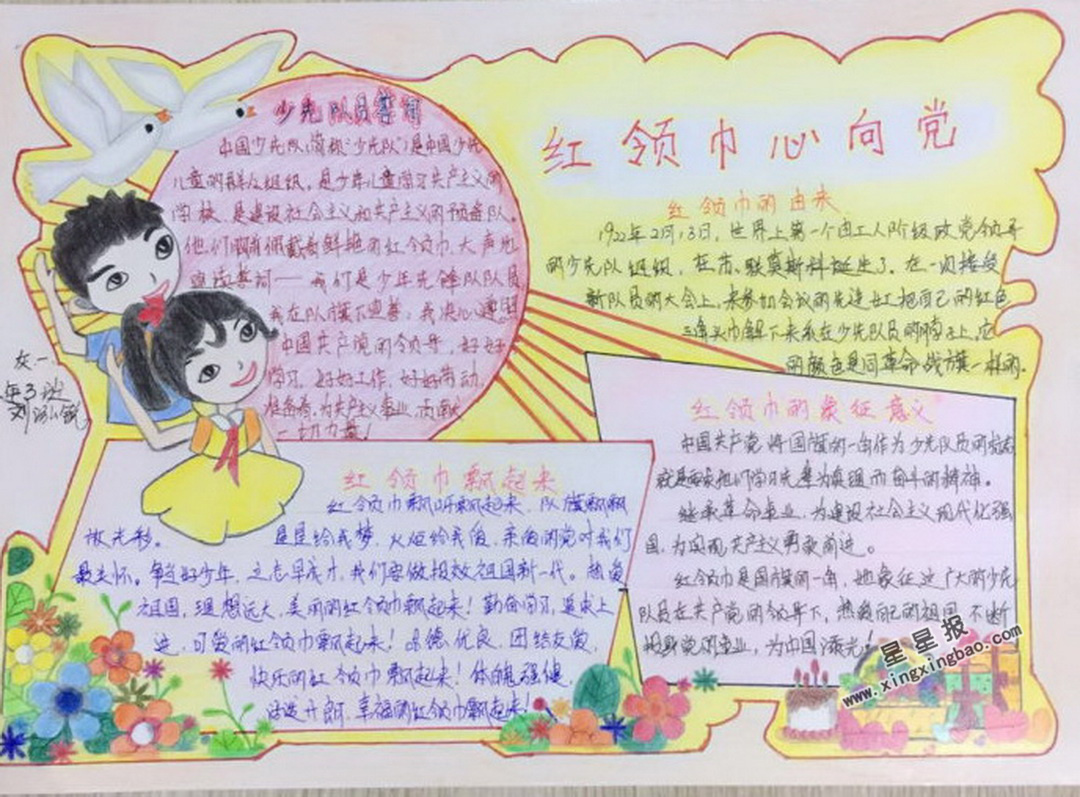 红领巾心向党
少先队员誓词
中国少先队(简称"少先队")是中国少先
儿童的群众组织。是少年儿童学习共产主义的
学校,是建设社会主义和共产主义的预备队。
他们胸前佩戴着鲜艳的红领巾,大声地
我们是少年先锋队队员
我在队旗下宣誓:我决心遵照
中国共产党的领导,好好
学习,好好工作,好好劳动,
准备着,为共产主义事业,贡献
一切力量!
红领巾的由来
1922年2月13日,世界上第一个由工人阶级政党领导
的少先队组织,在 莫斯科诞生了。在一次接受
新队员的大会上,来参加会议的先进女工把自己的红色
三角头巾解下来系在少先队员的脖子上,它
的颜色是同革命战旗一样的。
红领巾的象征意义
中国共产党将国旗的一角作为少先队员的标志
就是要求他们学习先辈为真理而奋斗的精神。
继承革命事业,为建设社会主义现代化强
国,为实现共产主义勇敢前进。
红领巾是国旗的一角,她象征这广大的少先
队员在共产党的领导下,热爱自己的祖国,不断
党的事业,为中国添光!
红领巾飘起来
红领巾飘呀飘起来,队旗飘飘
放光彩。 星星给我梦,火炬给我爱,亲爱的党对我们
最关怀。争当好少年,立志早成才,我们要做报效祖国新一代。热爱
祖国,理想远大,美丽的红领巾飘起来!勤奋学习,追求上
进,可爱的红领巾飘起来!品德优良,团结友爱,
快乐的红领巾飘起来!体魄强健,
活泼开朗,幸福的红领巾飘起来!
灰一
年3班
刘
星星报
www.xingxingbao.com